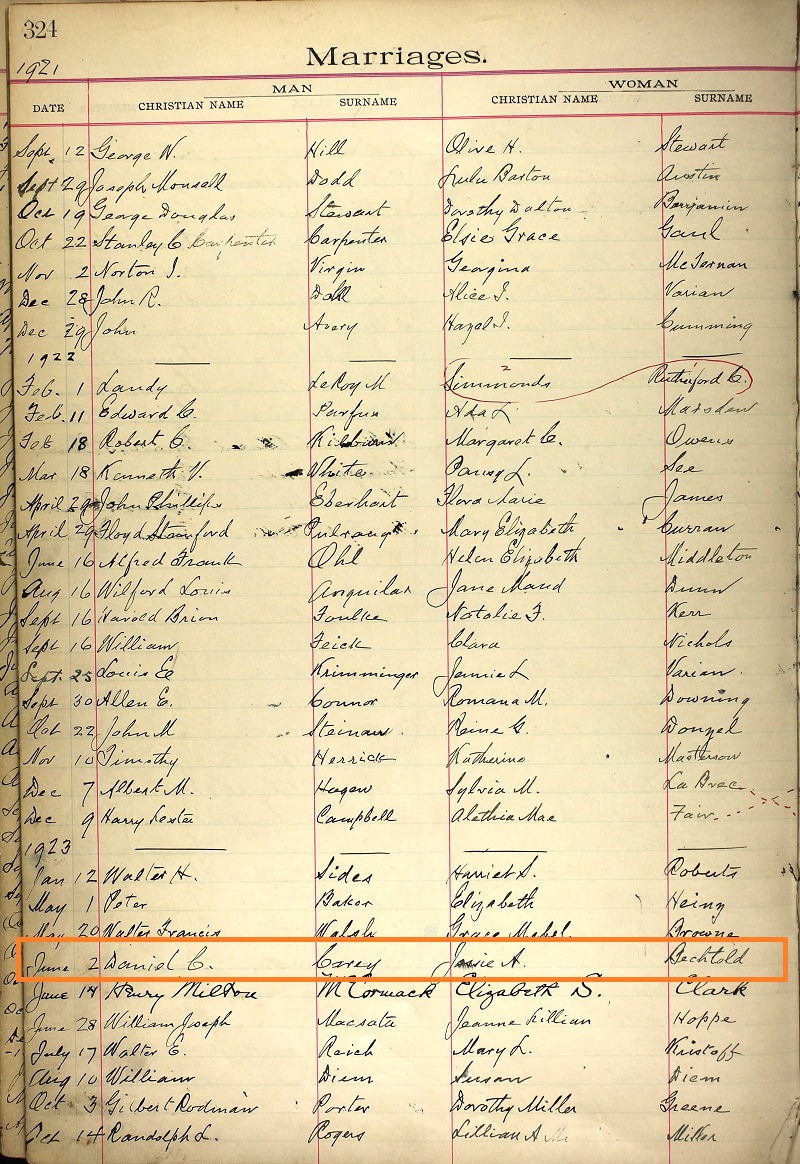 324
Marriages.
1921
MAN WOMAN
DATE CHRISTIAN NAME SURNAME CHRISTIAN NAME SURNAME
Sept. 12 George W. Hill Olive H. Stewart
Sept 29 Joseph Monsall Dodd Lulu Barton Austin
Oct 19 George Douglas Stewart Dorothy Dalton Benjamin
Oct 22 Stanley C Carpenter Carpenter Elsie Grace Gaul
Nov 2 Norton I. Virgin Georgina McTernan
Dec 28 John R. Doll Alice I. Varian
Dec 29 John Avery Hazel I. Cumming
1922
Feb. 1 Landy LeRoy M Simmonds 2 Rutherford C.
Feb. 11 Edward C. Ada L Marsden
Feb 18 Robert C. Margaret C. Owens
Mar 18 Kenneth V. White Pansy L. See
April 29 John Phillips Eberhart Flora Marie James
April 29 Floyd Mary Elizabeth Curran
June 16 Alfred Frank Ohl Helen Elizabeth Middleton
Aug 16 Wilford Louis Anguilar Jane Maud Dunn
Sept 16 Harold Brion Foulke Natalie F. Kerr
Sept 16 William Feick Clara Nichols
Sept. 25 Louis Krimminger Jennie L Varian.
Sept 30 Allen E. Connor Romana M. Downing
Oct 22 John M Reine G. Donzel
Nov 10 Timothy Herrick Katherine Masterson
Dec 7 Albert M. Hagen Sylvia M. La Brec
Dec 9 Harry Lester Campbell Alethia Mae Fair.
1923
Jan 12 Walter H. Sides Harriet S. Roberts
May 1 Peter Baker Elizabeth Heing
May 20 Walter Francis Walsh Grace Mabel. Browne
June 2 Daniel C. Carey Jessie A. Bechtold
June 14 Henry Milton McCormack Elizabeth S. Clark
June 28 William Joseph Macsata Jeanne Lillian Hoppe
July 17 Walter E. Reich Mary L. Kristoff
Aug 10 William Diem Susan Diem
Oct 3 Gilbert Rodman Porter Dorothy Miller Greene
Oct 14 Randolph L. Rogers Lillian A Miller